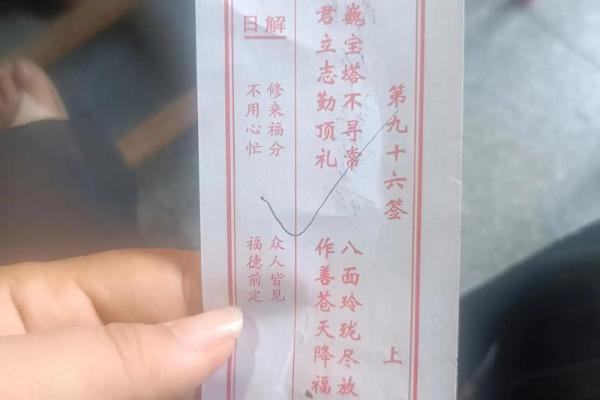 第九十六签 上
巍宝塔不寻常 八面玲珑尽放
君立志勤顶礼 作善苍天降福
解日
修来福分 众人皆见
不用心忙 福德前定